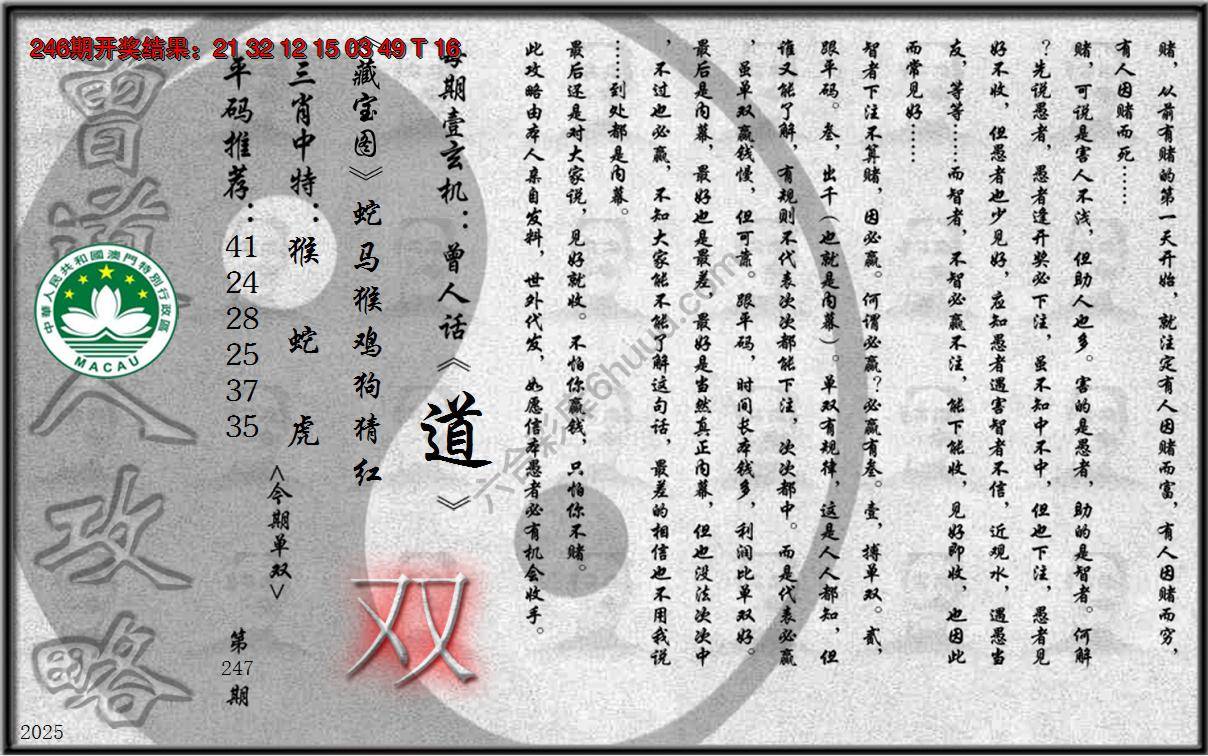 246期开奖结果：21 32 12 15 03 49 T 16
赌，从前有赌的第一天开始，就注定有人因赌而富，有人因赌而穷，
有人因赌而死……
赌，可说是害人不浅，但助人也多。害的是愚者，助的是智者。何解
？先说愚者，愚者逢开奖必下注，虽不知中不中，但也下注，愚者见
好不收，但愚者也少见好，应知愚者遇害智者不信，近观水，遇愚当
友，等等……而智者，不智必赢不注，能下能收，见好即收，也因此
而常见好……
智者下注不算赌，因必赢。何谓必赢？必赢有叁。壹，搏单双。贰，
跟平码。叁，出千（也就是内幕）。单双有规律，这是人人都知，但
谁又能了解，有规则不代表次次都能下注，次次都中。而是代表必赢
，虽单双赢钱慢，但可靠。跟平码，时间长本钱多，利润比单双好。
最后是内幕，最好也是最差，最好是当然真正内幕，但也没法次次中
，不过也必赢，不知大家能不能了解这句话，最差的相信也不用我说
……到处都是内幕。
最后还是对大家说，见好就收。不怕你赢钱，只怕你不赌。
此攻略由本人亲自发料，世外代发，如愿信本愚者必有机会收手。
每期壹玄机：曾人话《道》
《藏宝图》蛇马猴鸡狗猪红
三肖中特：猴 蛇 虎
平码推荐：
41
24
28
25
37
35
<今期单双>
双
第
247
期
曾道人攻略
中華人民共和國澳門特別行政區
MACAU
六合彩库6huuu.com
2025